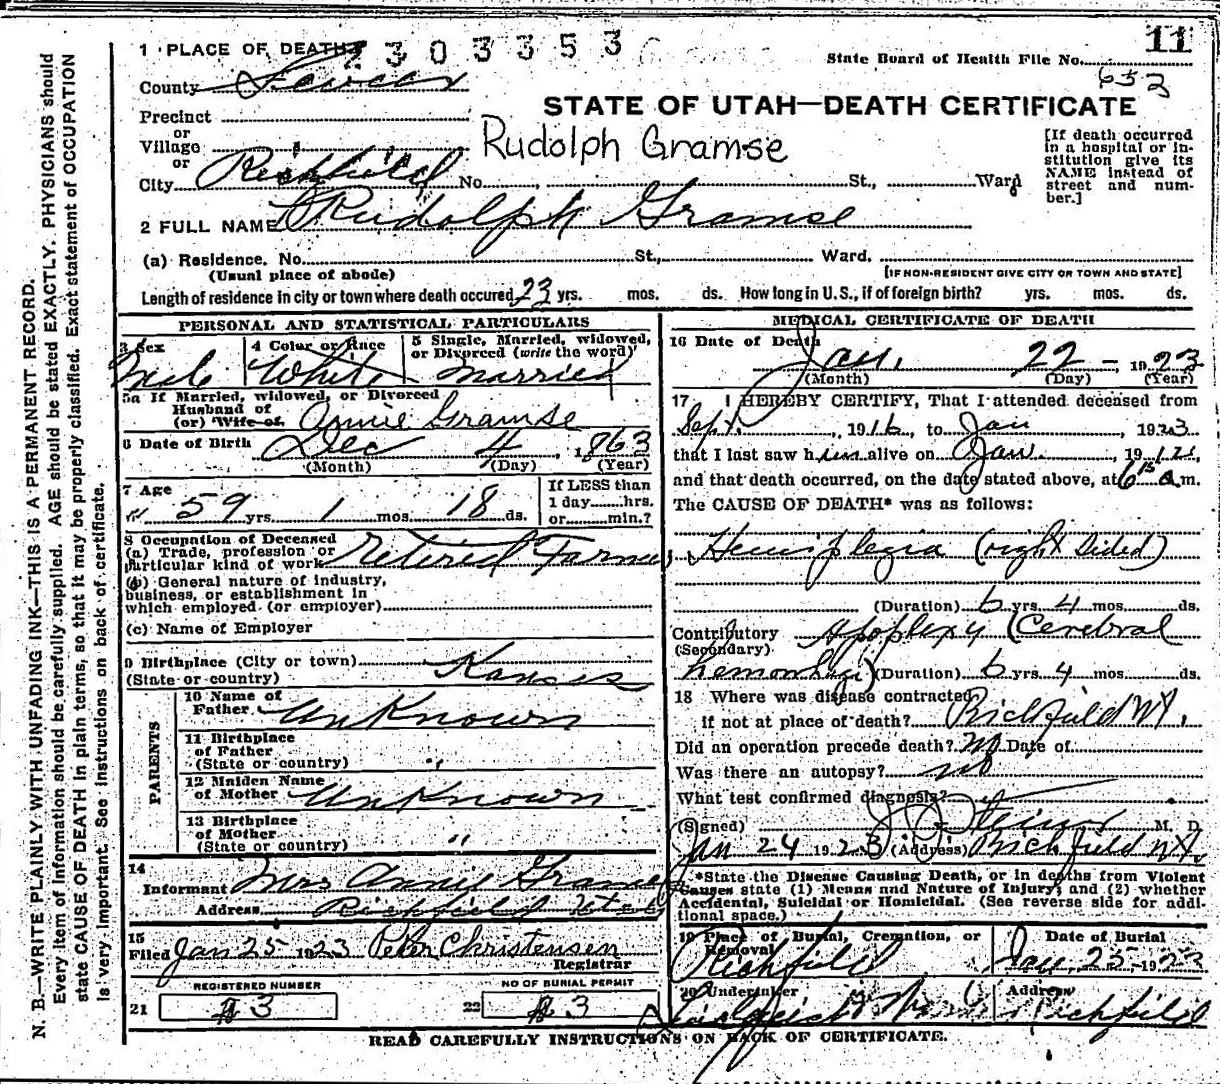 11
1 PLACE OF DEATH 2303353
State Board of Health File No. 652
County Sevier
STATE OF UTAH—DEATH CERTIFICATE
Precinct
or
Village
or
Rudolph Gramse
[If death occurred in a hospital or institution give its NAME instead of street and number.]
City Richfield No. , St., Ward
2 FULL NAME Rudolph Gramse
(a) Residence. No. St., Ward.
(Usual place of abode) [IF NON-RESIDENT GIVE CITY OR TOWN AND STATE]
Length of residence in city or town where death occured 23 yrs. mos. ds. How long in U.S., if of foreign birth? yrs. mos. ds.
PERSONAL AND STATISTICAL PARTICULARS
3 Sex 4 Color or Race 5 Single, Married, widowed, or Divorced (write the word)
Male White Married
5a If Married, widowed, or Divorced
Husband of
(or) Wife of Annie Gramse
6 Date of Birth Dec 4, 1863
(Month) (Day) (Year)
7 Age 59 yrs. 1 mos. 18 ds.
If LESS than 1 day......hrs. or......min.?
8 Occupation of Deceased
(a) Trade, profession or particular kind of work Retired Farmer
(b) General nature of industry, business, or establishment in which employed (or employer)
(c) Name of Employer
9 Birthplace (City or town) Kansas
(State or country)
PARENTS
10 Name of Father Unknown
11 Birthplace of Father (State or country) "
12 Maiden Name of Mother Unknown
13 Birthplace of Mother (State or country) "
14
Informant Mrs Annie Gramse
Address Richfield Utah
15
Filed Jan 25 1923 Peter Christensen
Registrar
REGISTERED NUMBER
21 3
NO OF BURIAL PERMIT
22 3
MEDICAL CERTIFICATE OF DEATH
16 Date of Death
Jan. 22 - 1923
(Month) (Day) (Year)
17 I HEREBY CERTIFY, That I attended deceased from
Sept. , 1916, to Jan , 1923
that I last saw him alive on Jan. , 19
and that death occurred, on the date stated above, at 6 15 a m.
The CAUSE OF DEATH* was as follows:
Hemiplegia (right sided)
(Duration) 6 yrs. 4 mos. ds.
Contributory Apoplexy (Cerebral
(Secondary)
hemorrhage) (Duration) 6 yrs. 4 mos. ds.
18 Where was disease contracted
if not at place of death? Richfield
Did an operation precede death? No Date of
Was there an autopsy? no
What test confirmed diagnosis?
(Signed) M. D.
Jan 24 1923 (Address) Richfield
*State the Disease Causing Death, or in deaths from Violent Causes state (1) Means and Nature of Injury; and (2) whether Accidental, Suicidal or Homicidal. (See reverse side for additional space.)
19 Place of Burial, Cremation, or Removal Date of Burial
Richfield Jan. 25 - 1923
20 Undertaker Address
Richfield
READ CAREFULLY INSTRUCTIONS ON BACK OF CERTIFICATE.
N. B.—WRITE PLAINLY WITH UNFADING INK—THIS IS A PERMANENT RECORD.
Every item of information should be carefully supplied. AGE should be stated EXACTLY. PHYSICIANS should
state CAUSE OF DEATH in plain terms, so that it may be properly classified. Exact statement of OCCUPATION
is very important. See instructions on back of certificate.